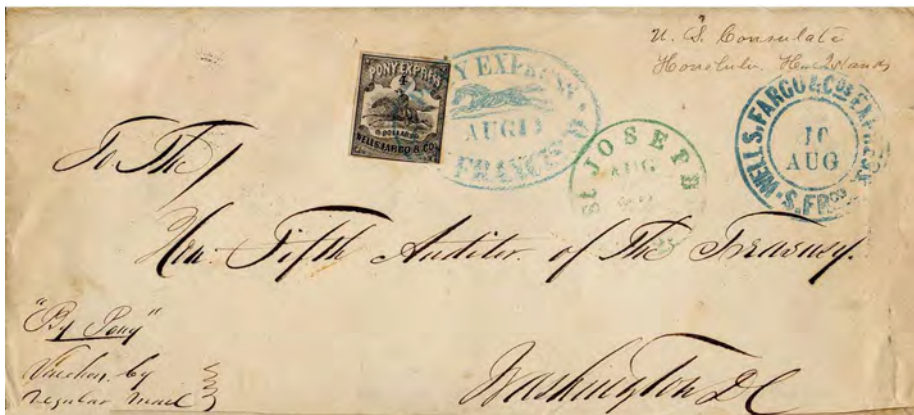 U. S. Consulate
Honolulu. Hawn Islands
PONY EXPRESS
4
DOLLARS
WELLS, FARGO & CO
PONY EXPRESS
AUG
SAN FRANCISCO
ST JOSEPH
AUG
WELLS, FARGO & COS EXPRESS
10
AUG
S. FRCO
To The
Hon. Fifth Auditor of The Treasury.
"By Pony"
by
regular mail
Washington DC